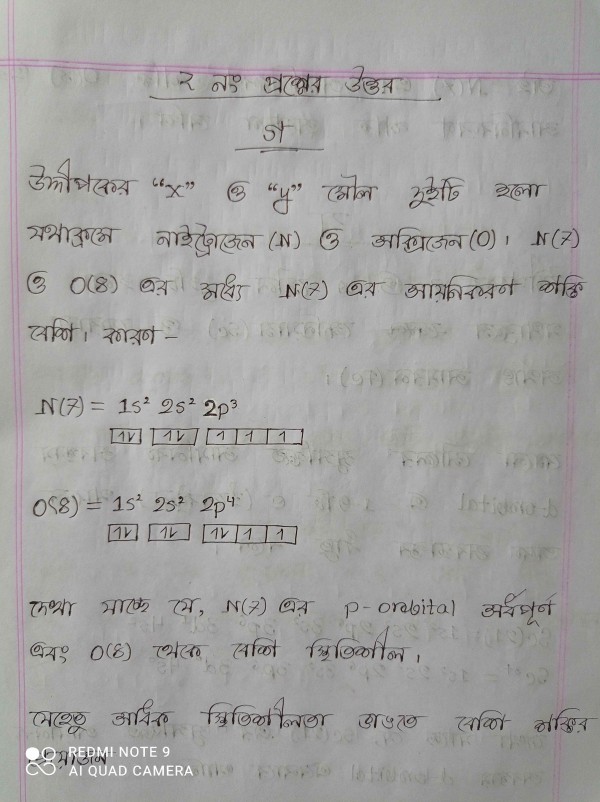 ২ নং প্রশ্নের উত্তর
গ
উদ্দীপকের "x" ও "y" মৌল দুইটি হলো
যথাক্রমে নাইট্রোজেন (N) ও অক্সিজেন (O)। N(7)
ও O(8) এর মধ্যে N(7) এর আয়নিকরণ শক্তি
বেশি। কারণ -
N(7) = 1s² 2s² 2p³
1l 1l 1 1 1
O(8) = 1s² 2s² 2p⁴
1l 1l 1l 1 1
দেখা যাচ্ছে যে, N(7) এর p-orabital অর্ধপূর্ন
এবং O(8) থেকে বেশি স্থিতিশীল।
যেহেতু অধিক স্থিতিশীলতা ভাঙতে বেশি শক্তির
REDMI NOTE 9
AI QUAD CAMERA